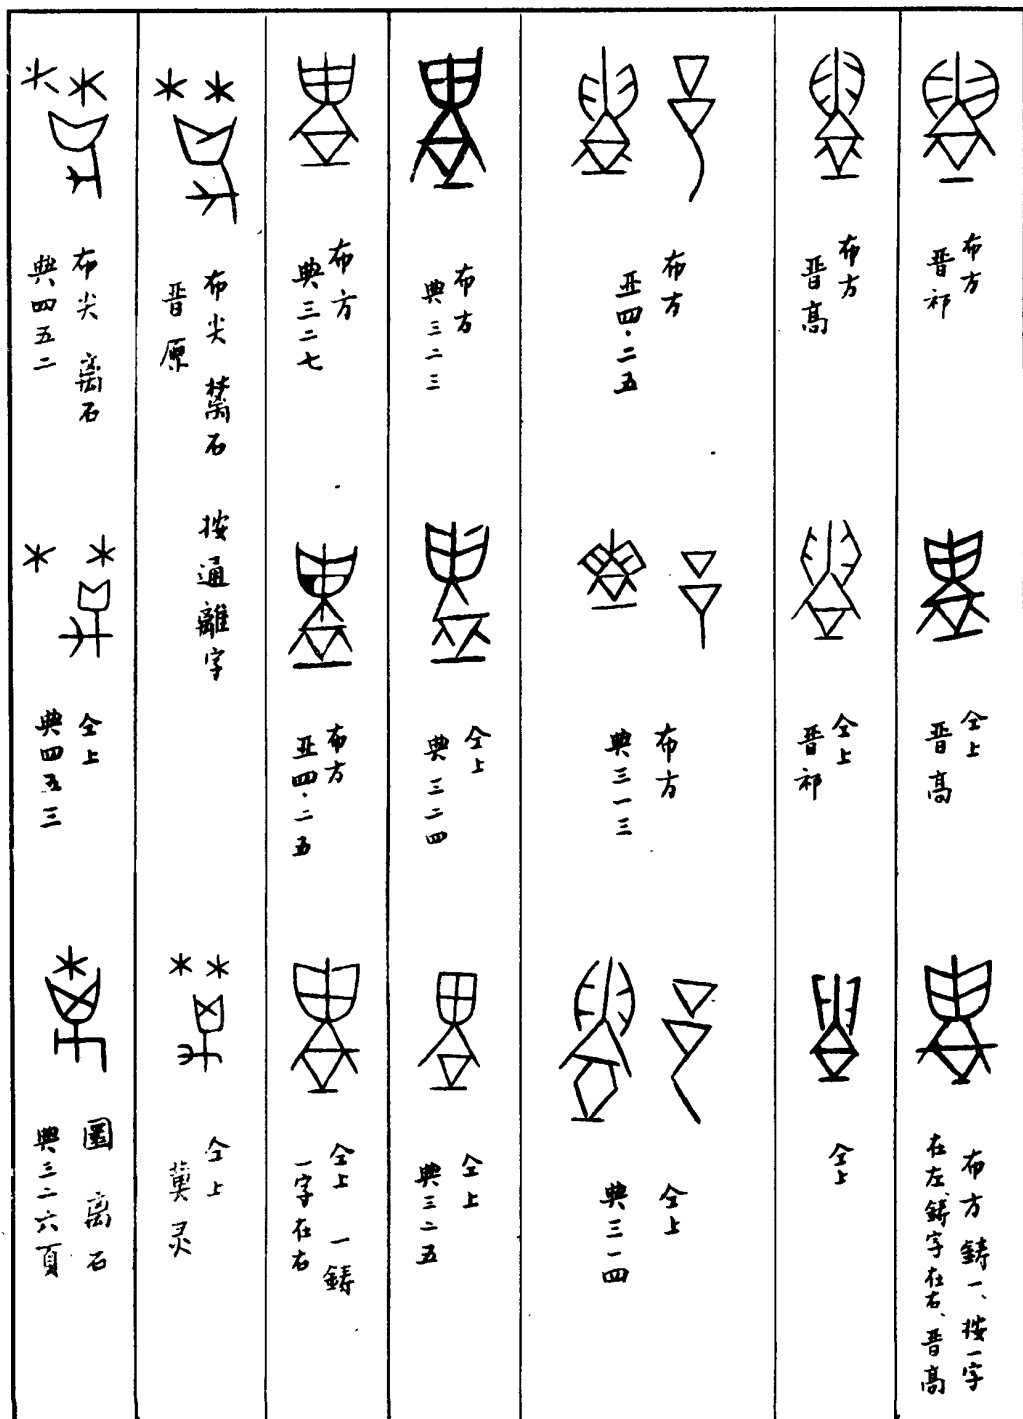 布方
晋祁
仝上
晋高
布方 鑄一、按一字
在左、鑄字在右、晋高
布方
晋高
仝上
晋祁
仝上
布方
亚四·二五
布方
典三一三
仝上
典三一四
布方
典三二三
仝上
典三二四
仝上
典三二五
布方
典三二七
布方
亚四·二五
仝上 一鑄
一字在右
布尖 𦿆石 按通離字
晋原
仝上
冀灵
布尖 离石
典四五二
仝上
典四五三
圜 离石
典三二六頁